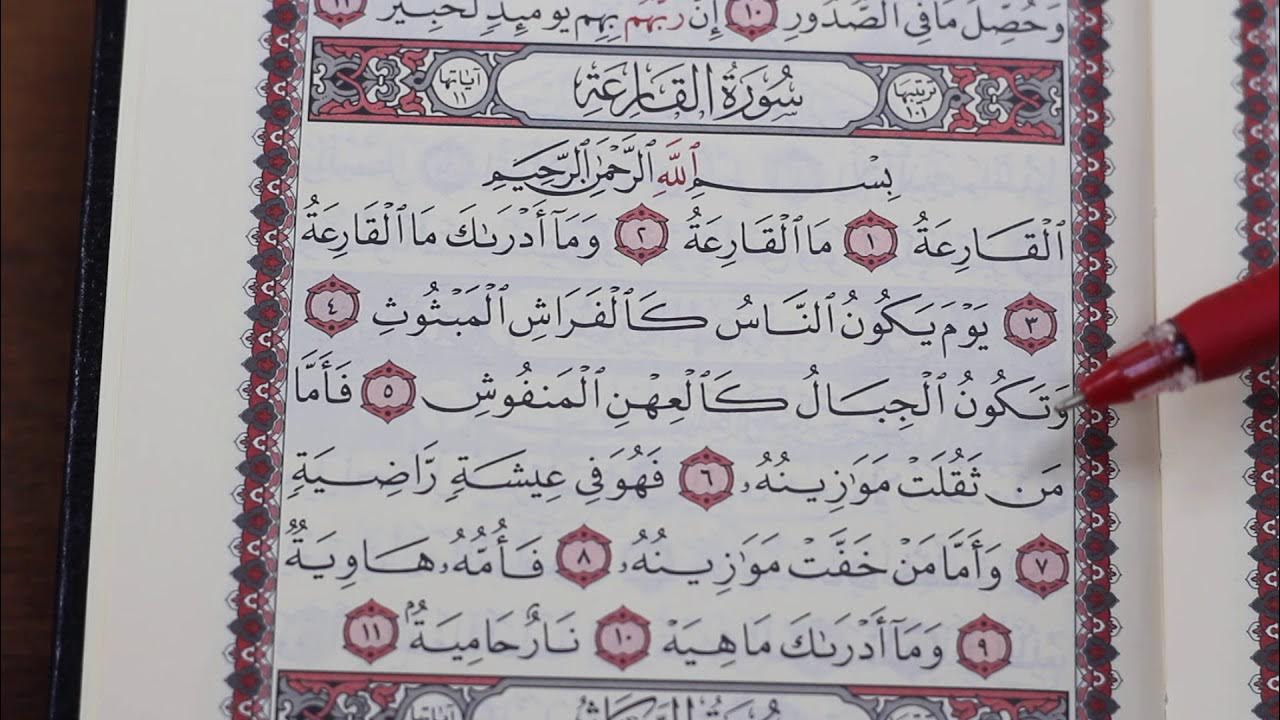 وَحُصِّلَ مَا فِي الصُّدُورِ ١٠ إِنَّ رَبَّهُم بِهِمْ يَوْمَئِذٍ لَّخَبِيرٌ ١١
ترتيبها ١٠١ سُورَةُ القَارِعَةِ آياتها ١١
بِسْمِ ٱللَّهِ ٱلرَّحْمَٰنِ ٱلرَّحِيمِ
ٱلْقَارِعَةُ ١ مَا ٱلْقَارِعَةُ ٢ وَمَآ أَدْرَىٰكَ مَا ٱلْقَارِعَةُ
٣ يَوْمَ يَكُونُ ٱلنَّاسُ كَٱلْفَرَاشِ ٱلْمَبْثُوثِ ٤
وَتَكُونُ ٱلْجِبَالُ كَٱلْعِهْنِ ٱلْمَنفُوشِ ٥ فَأَمَّا
مَن ثَقُلَتْ مَوَٰزِينُهُۥ ٦ فَهُوَ فِي عِيشَةٍ رَّاضِيَةٍ
٧ وَأَمَّا مَنْ خَفَّتْ مَوَٰزِينُهُۥ ٨ فَأُمُّهُۥ هَاوِيَةٌ
٩ وَمَآ أَدْرَىٰكَ مَا هِيَهْ ١٠ نَارٌ حَامِيَةٌۢ ١١
سُورَةُ